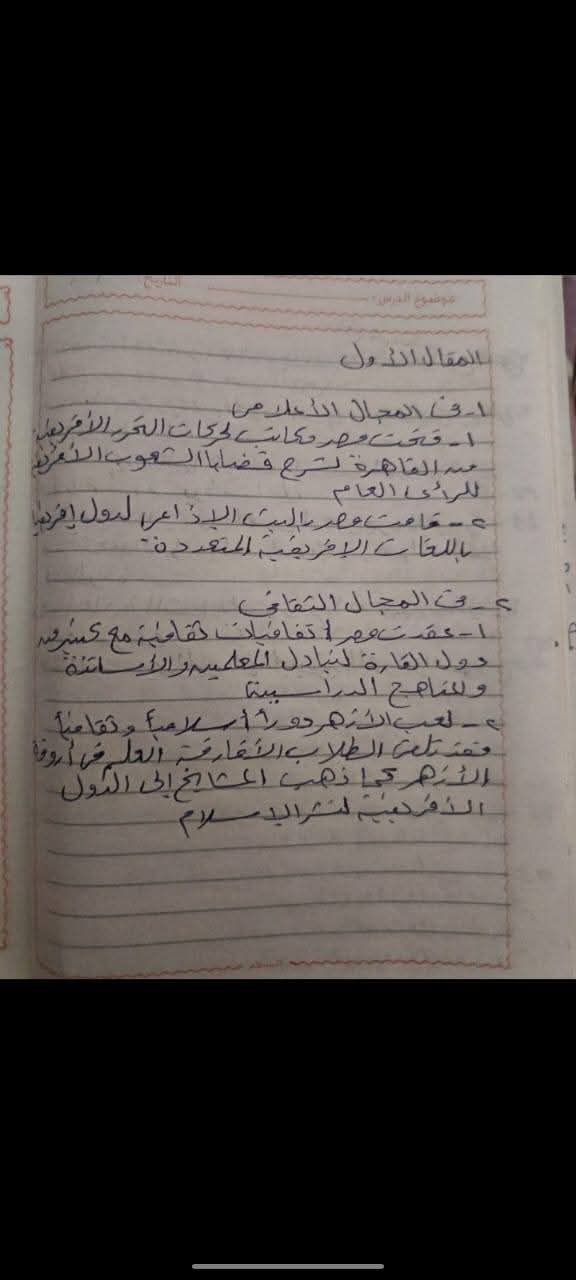 التاريخ
عنوان الدرس:
المقال الأول
١- فى المجال الأعلامى
١- فتحت مصر مكاتب لحركات التحرر الأفريقية
من القاهرة لشرح قضايا الشعوب الأفريقية
للرأى العام
٢- قامت مصر بالبث الإذاعى لدول إفريقيا
باللغات الإفريقية المتعددة.
٢- فى المجال الثقافى
١- عقدت مصر اتفاقيات ثقافية مع كثير من
دول القارة لتبادل المعلمين والأساتذة
والمناهج الدراسية
٢- لعب الأزهر دوراً أسلامياً وثقافياً
فقد تلقى الطلاب الأفارقة العلم فى أروقة
الأزهر كما ذهب المشايخ إلى الدول
الأفريقية لنشر الإسلام